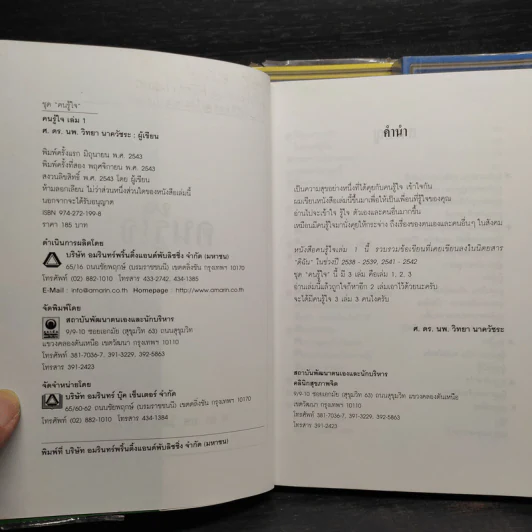 ชุด "คนรู้ใจ"
คนรู้ใจ เล่ม 1
ศ. ดร. นพ. วิทยา นาควัชระ : ผู้เขียน
พิมพ์ครั้งแรก มิถุนายน พ.ศ. 2543
พิมพ์ครั้งที่สอง พฤศจิกายน พ.ศ. 2543
สงวนลิขสิทธิ์ พ.ศ. 2543 โดย ผู้เขียน
ห้ามลอกเลียน ไม่ว่าส่วนหนึ่งส่วนใดของหนังสือเล่มนี้
นอกจากจะได้รับอนุญาต
ISBN 974-272-199-8
ราคา 185 บาท
ดำเนินการผลิตโดย
บริษัท อมรินทร์พริ้นติ้งแอนด์พับลิชชิ่ง จำกัด (มหาชน)
65/16 ถนนชัยพฤกษ์ (บรมราชชนนี) เขตตลิ่งชัน กรุงเทพฯ 10170
โทรศัพท์ (02) 882-1010 โทรสาร 433-2742, 434-1385
E-Mail : info@amarin.co.th Homepage : http://www.amarin.co.th
จัดพิมพ์โดย
สถาบันพัฒนาตนเองและนักบริหาร
9/9-10 ซอยเอกมัย (สุขุมวิท 63) ถนนสุขุมวิท
แขวงคลองตันเหนือ เขตวัฒนา กรุงเทพฯ 10110
โทรศัพท์ 381-7036-7, 391-3229, 392-5863
โทรสาร 391-2423
จัดจำหน่ายโดย
บริษัท อมรินทร์ บุ๊ค เซ็นเตอร์ จำกัด
65/60-62 ถนนชัยพฤกษ์ (บรมราชชนนี) เขตตลิ่งชัน กรุงเทพฯ 10170
โทรศัพท์ (02) 882-1010 โทรสาร 434-1384
พิมพ์ที่ บริษัท อมรินทร์พริ้นติ้งแอนด์พับลิชชิ่ง จำกัด (มหาชน)
คำนำ
เป็นความสุขอย่างหนึ่งที่ได้คุยกับคนรู้ใจ เข้าใจกัน
ผมเขียนหนังสือเล่มนี้ขึ้นมาเพื่อให้เป็นเพื่อนที่รู้ใจของคุณ
อ่านไปจะเข้าใจ รู้ใจ ตัวเองและคนอื่นมากขึ้น
เหมือนมีคนรู้ใจมานั่งคุยให้กระจ่าง ถึงเรื่องของตนเองและคนอื่นๆ ในสังคม
หนังสือคนรู้ใจเล่ม 1 นี้ รวบรวมข้อเขียนที่เคยเขียนลงในนิตยสาร
"ดิฉัน" ในช่วงปี 2538-2539, 2541-2542
ชุด "คนรู้ใจ" นี้ มี 3 เล่ม คือเล่ม 1, 2, 3
อ่านเล่มนี้แล้วถูกใจก็หาอีก 2 เล่มเอาไว้ด้วยนะครับ
จะได้มีคนรู้ใจ 3 เล่ม 3 คนไงครับ
ศ. ดร. นพ. วิทยา นาควัชระ
สถาบันพัฒนาตนเองและนักบริหาร
คลินิกสุขภาพจิต
9/9-10 ซอยเอกมัย (สุขุมวิท 63) ถนนสุขุมวิท แขวงคลองตันเหนือ
เขตวัฒนา กรุงเทพฯ 10110
โทรศัพท์ 381-7036-7, 391-3229, 392-5863
โทรสาร 391-2423